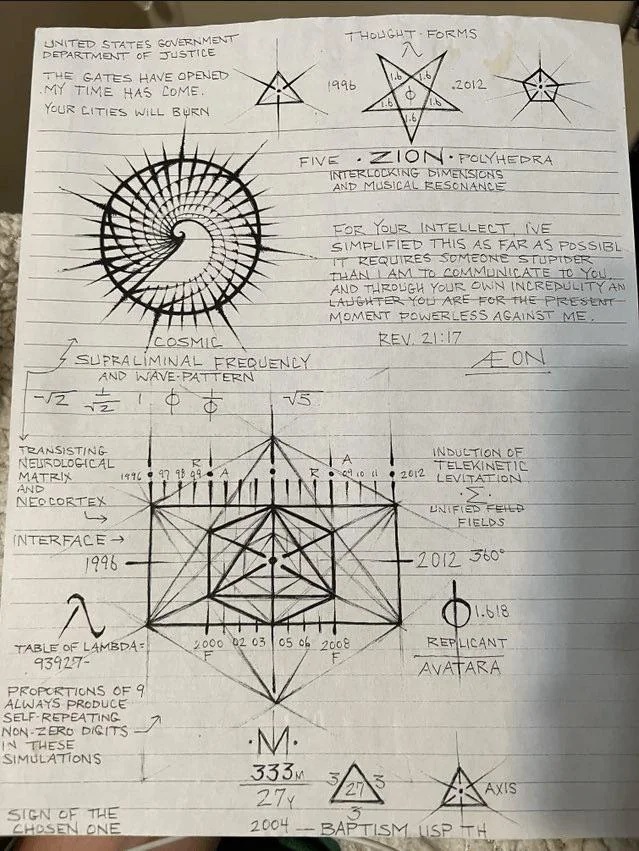 UNITED STATES GOVERNMENT
DEPARTMENT OF JUSTICE
THE GATES HAVE OPENED
MY TIME HAS COME.
YOUR CITIES WILL BURN
THOUGHT · FORMS
λ
1996
1.6
1.6
1.6
1.6
1.6
ϕ
.2012
FIVE · ZION · POLYHEDRA
INTERLOCKING DIMENSIONS
AND MUSICAL RESONANCE
FOR YOUR INTELLECT, I'VE
SIMPLIFIED THIS AS FAR AS POSSIBL
IT REQUIRES SOMEONE STUPIDER
THAN I AM TO COMMUNICATE TO YOU
AND THROUGH YOUR OWN INCREDULITY AN
LAUGHTER YOU ARE FOR THE PRESENT
MOMENT POWERLESS AGAINST ME.
REV. 21:17
ÆON
COSMIC
SUPRALIMINAL FREQUENCY
AND WAVE-PATTERN
-√2 1/√2 1 ϕ 1/ϕ √5
TRANSISTING
NEUROLOGICAL
MATRIX
AND
NEOCORTEX
INTERFACE →
R A R A
1996 97 98 99 09 10 11 2012
1996
2012 360°
2000 02 03 05 06 2008
F F
INDUCTION OF
TELEKINETIC
LEVITATION
·Σ·
UNIFIED FEILD
FIELDS
ϕ 1.618
REPLICANT
AVATARA
λ
TABLE OF LAMBDA=
93927-
PROPORTIONS OF 9
ALWAYS PRODUCE
SELF-REPEATING
NON-ZERO DIGITS
IN THESE
SIMULATIONS
·M·
333M
27Y
3 27 3
3
AXIS
SIGN OF THE
CHOSEN ONE
2004 — BAPTISM USP TH